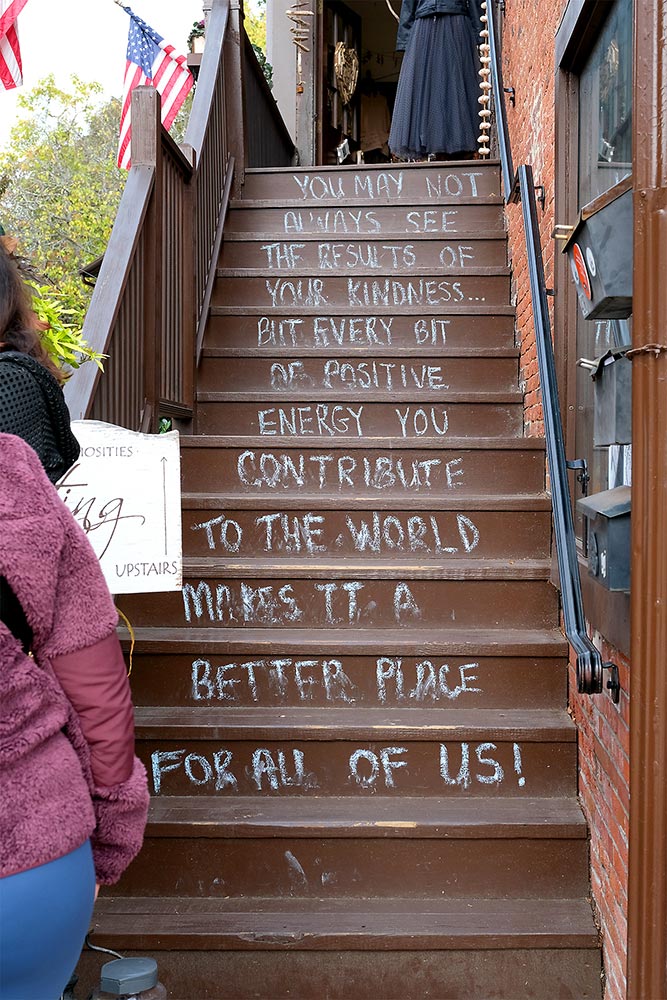 YOU MAY NOT
ALWAYS SEE
THE RESULTS OF
YOUR KINDNESS...
BUT EVERY BIT
OF POSITIVE
ENERGY YOU
CONTRIBUTE
TO THE WORLD
MAKES IT A
BETTER PLACE
FOR ALL OF US!
OSITIES
ing
UPSTAIRS